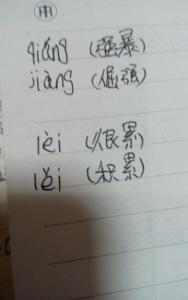 qiáng (强暴)
jiàng (倔强)
lèi (很累)
lěi (积累)